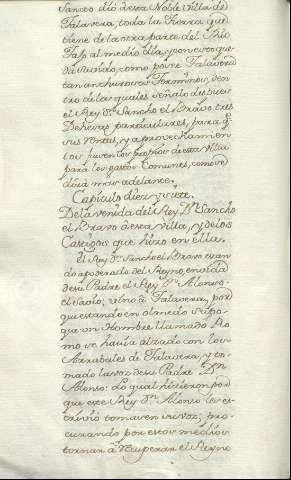 Sancto dió desea Noble Villa de
Talavera, toda la tierra que
tiene de la otra parte del Rio
Tajo al medio dia, y con esto que-
dó Señorío, como posee Talavera
tan anchurosos Terminos, den
tro de los quales señaló despues
el Rey Dn. Sancho el Brabo tres
Dehesas particulares, para q
sus rentas, y aprovechamien
tos fuesen los propios de esta Villa
para los gastos Comunes, como se
dirá mas adelante.
Capitulo diez y siete.
De la venida del Rey Dn. Sancho
el Bravo á esta villa, y de los
Castigos que hizo en ella.
El Rey Dn. Sancho el Bravo estan
do apoderado del Reyno, en vida
de su Padre el Rey Dn. Alonso
el Savio, vino á Talavera, por
que estando en olmedo supo
que un Hombre llamado Ro
mo se havia alzado con los
Arrabales de Talavera, y to
mado la voz de su Padre Dn.
Alonso: Lo qual hicieron por
que este Rey Dn. Alonso les es-
crivió tomasen su voz; pro
curando por estos medios
tornar á recuperar el Reyno